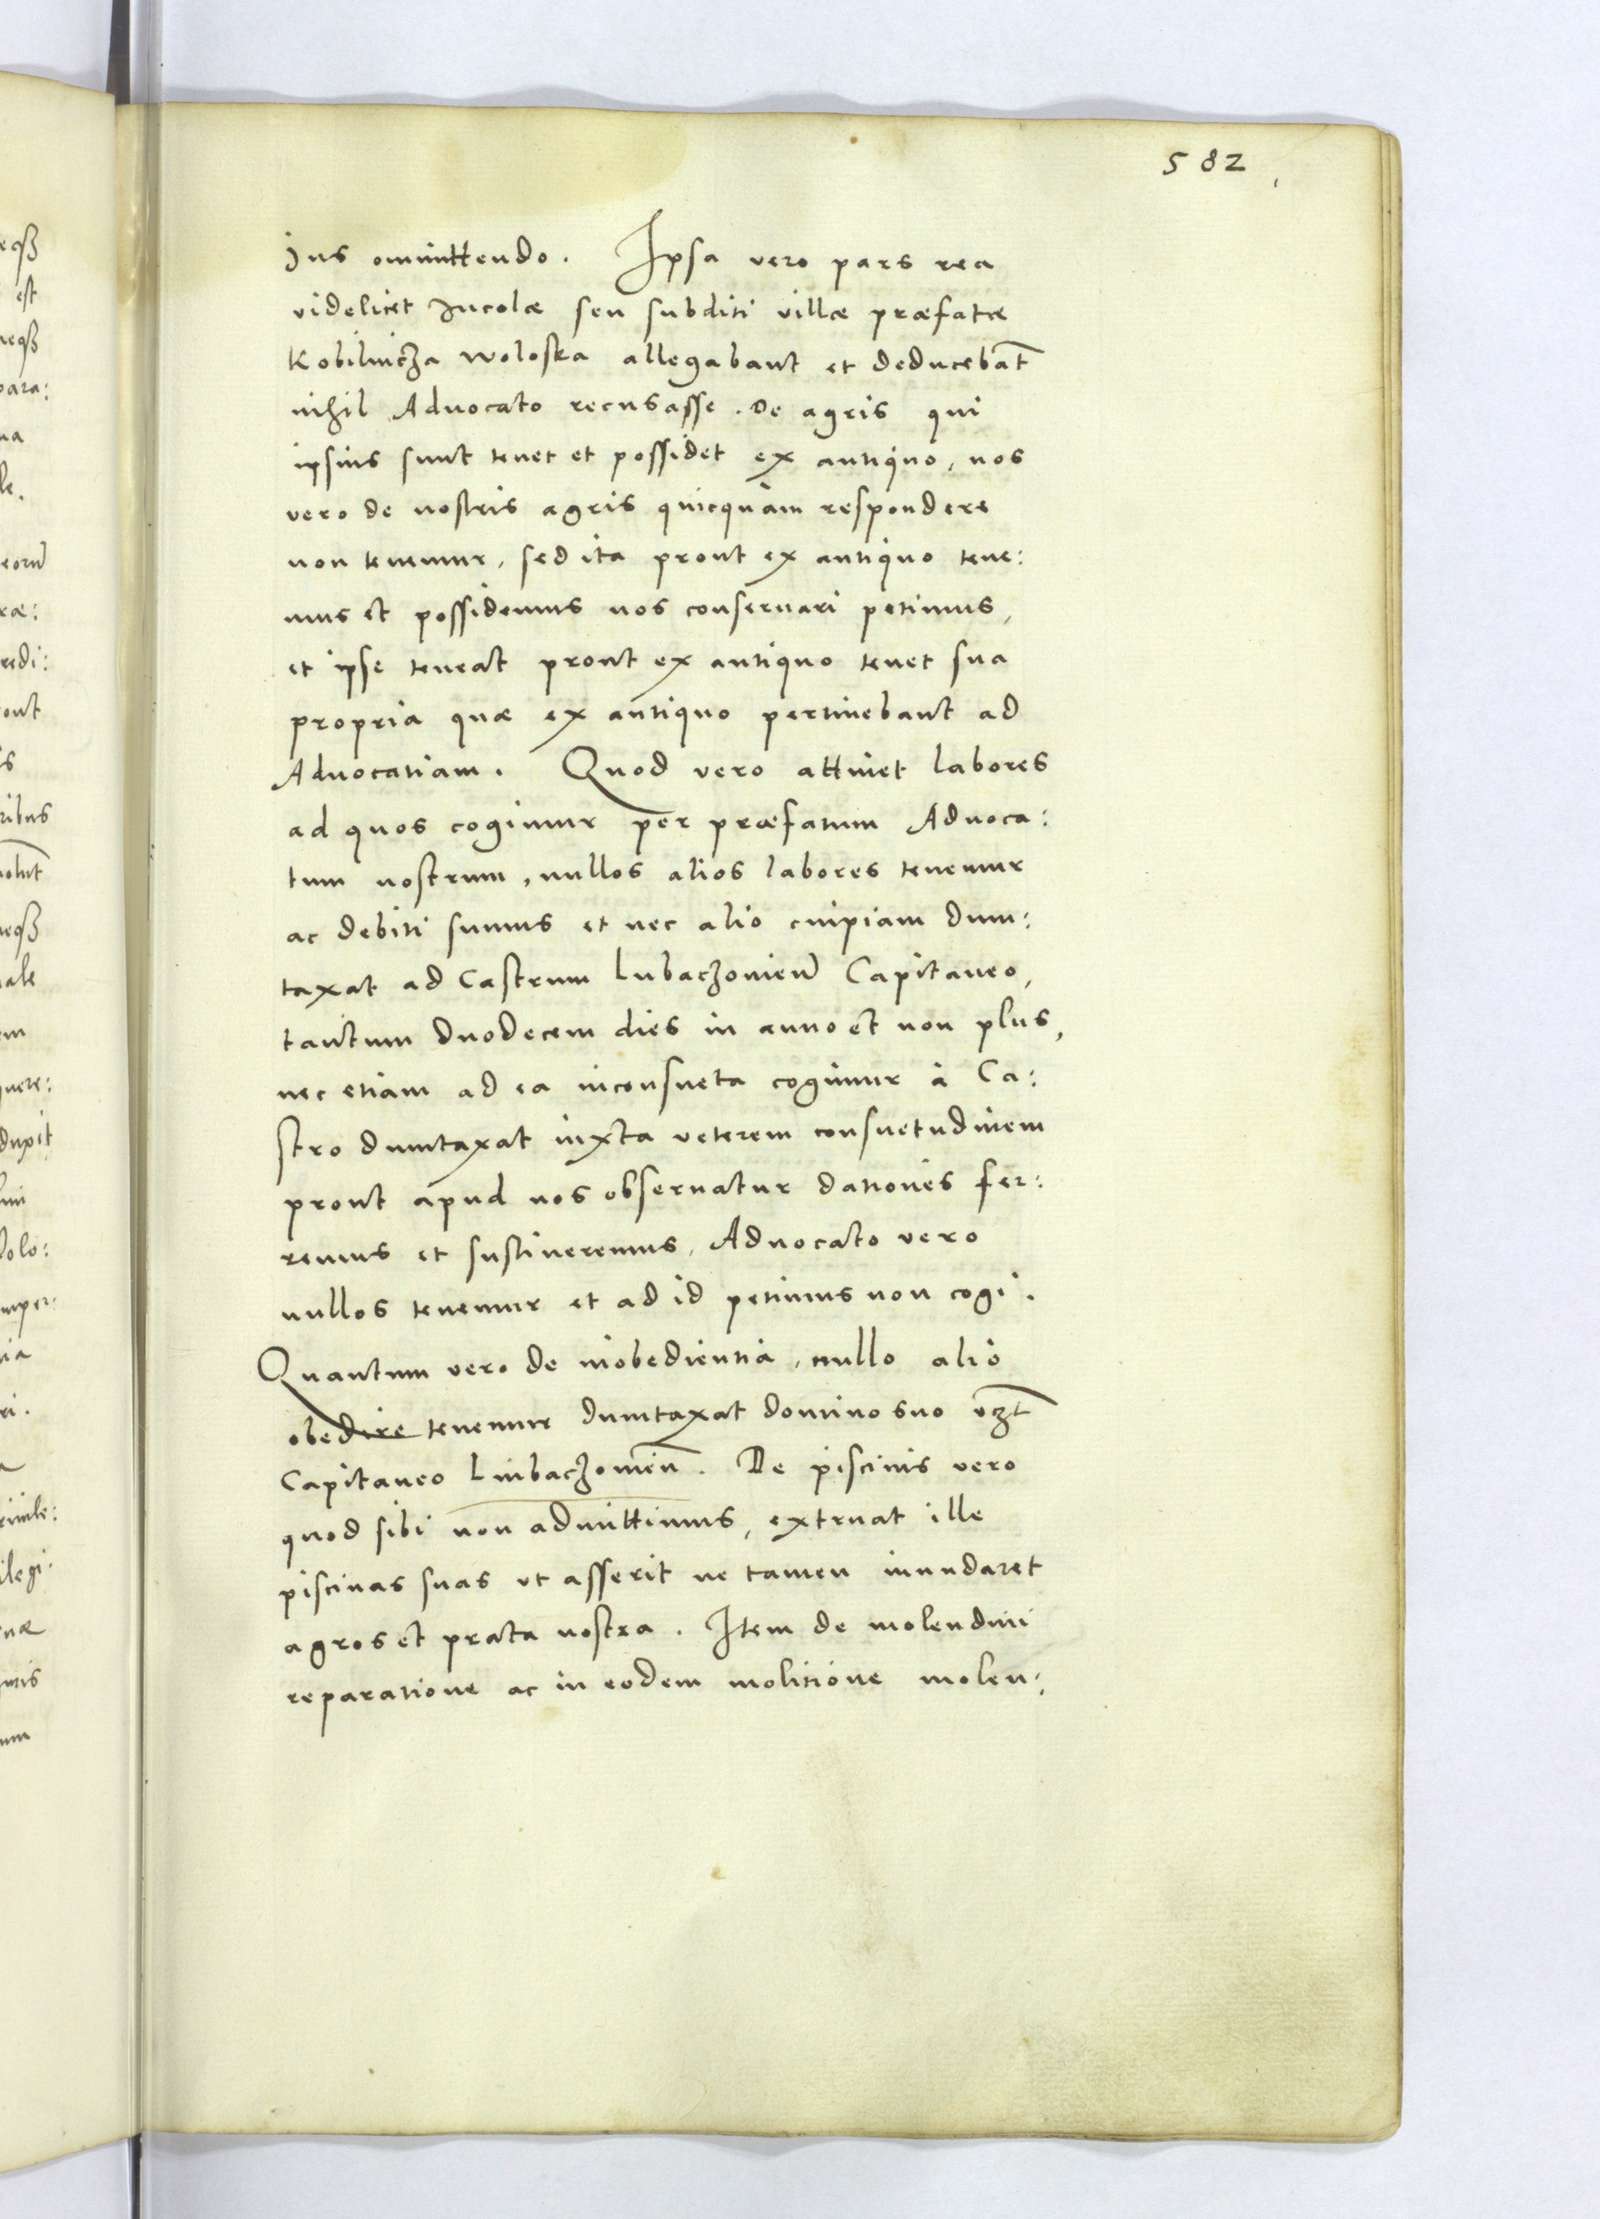 582
ius ommittendo. Ipsa vero pars rea
videlicet Incolæ seu subditi villæ præfatæ
Kobilnicza Woloska allegabant et deducebat̄
nihil Advocato recusasse. De agris qui
ipsius sunt tenet et possidet ex antiquo, nos
vero de nostris agris quicquam respondere
non tenemur, sed ita prout ex antiquo tene:
mus et possidemus nos conservari petimus,
et ipse teneat prout ex antiquo tenet sua
propria quæ ex antiquo pertinebant ad
Advocatiam. Quod vero attinet labores
ad quos cogimur per præfatum Advoca:
tum nostrum, nullos alios labores tenemur
ac debiti sumus et nec alio cuipiam dum:
taxat ad Castrum Lubaczovien̄ Capitaneo,
tantum duodecem dies in anno et non plus,
nec etiam ad ea inconsueta cogimur à Ca:
stro dumtaxat iuxta veterem consuetudinem
prout apud nos observatur dationes fer:
remus et sustineremus, Advocato vero
nullos tenemur et ad id petimus non cogi.
Quantum vero de inobedientia, nullo alio
obedire tenemur dumtaxat domino suo vcz̄t
Capitaneo Luibaczovien̄. De piscinis vero
quod sibi non admittimus, extruat ille
piscinas suas ut asserit ne tamen inundaret
agros et prata nostra. Item de molendini
reparatione ac in eodem molitione molen: